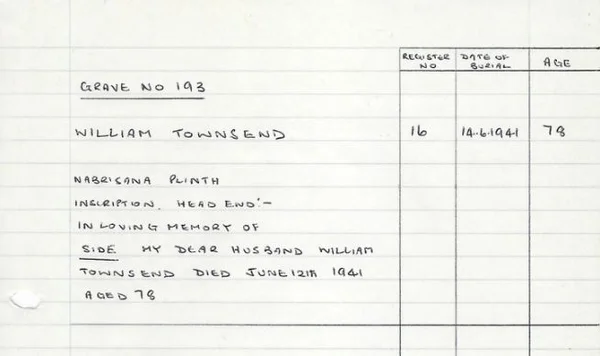 REGISTER NO
DATE OF BURIAL
AGE
GRAVE NO 193
WILLIAM TOWNSEND 16 14.6.1941 78
NABRISANA PLINTH
INSCRIPTION. HEAD END:-
IN LOVING MEMORY OF
SIDE MY DEAR HUSBAND WILLIAM
TOWNSEND DIED JUNE 12TH 1941
AGED 78